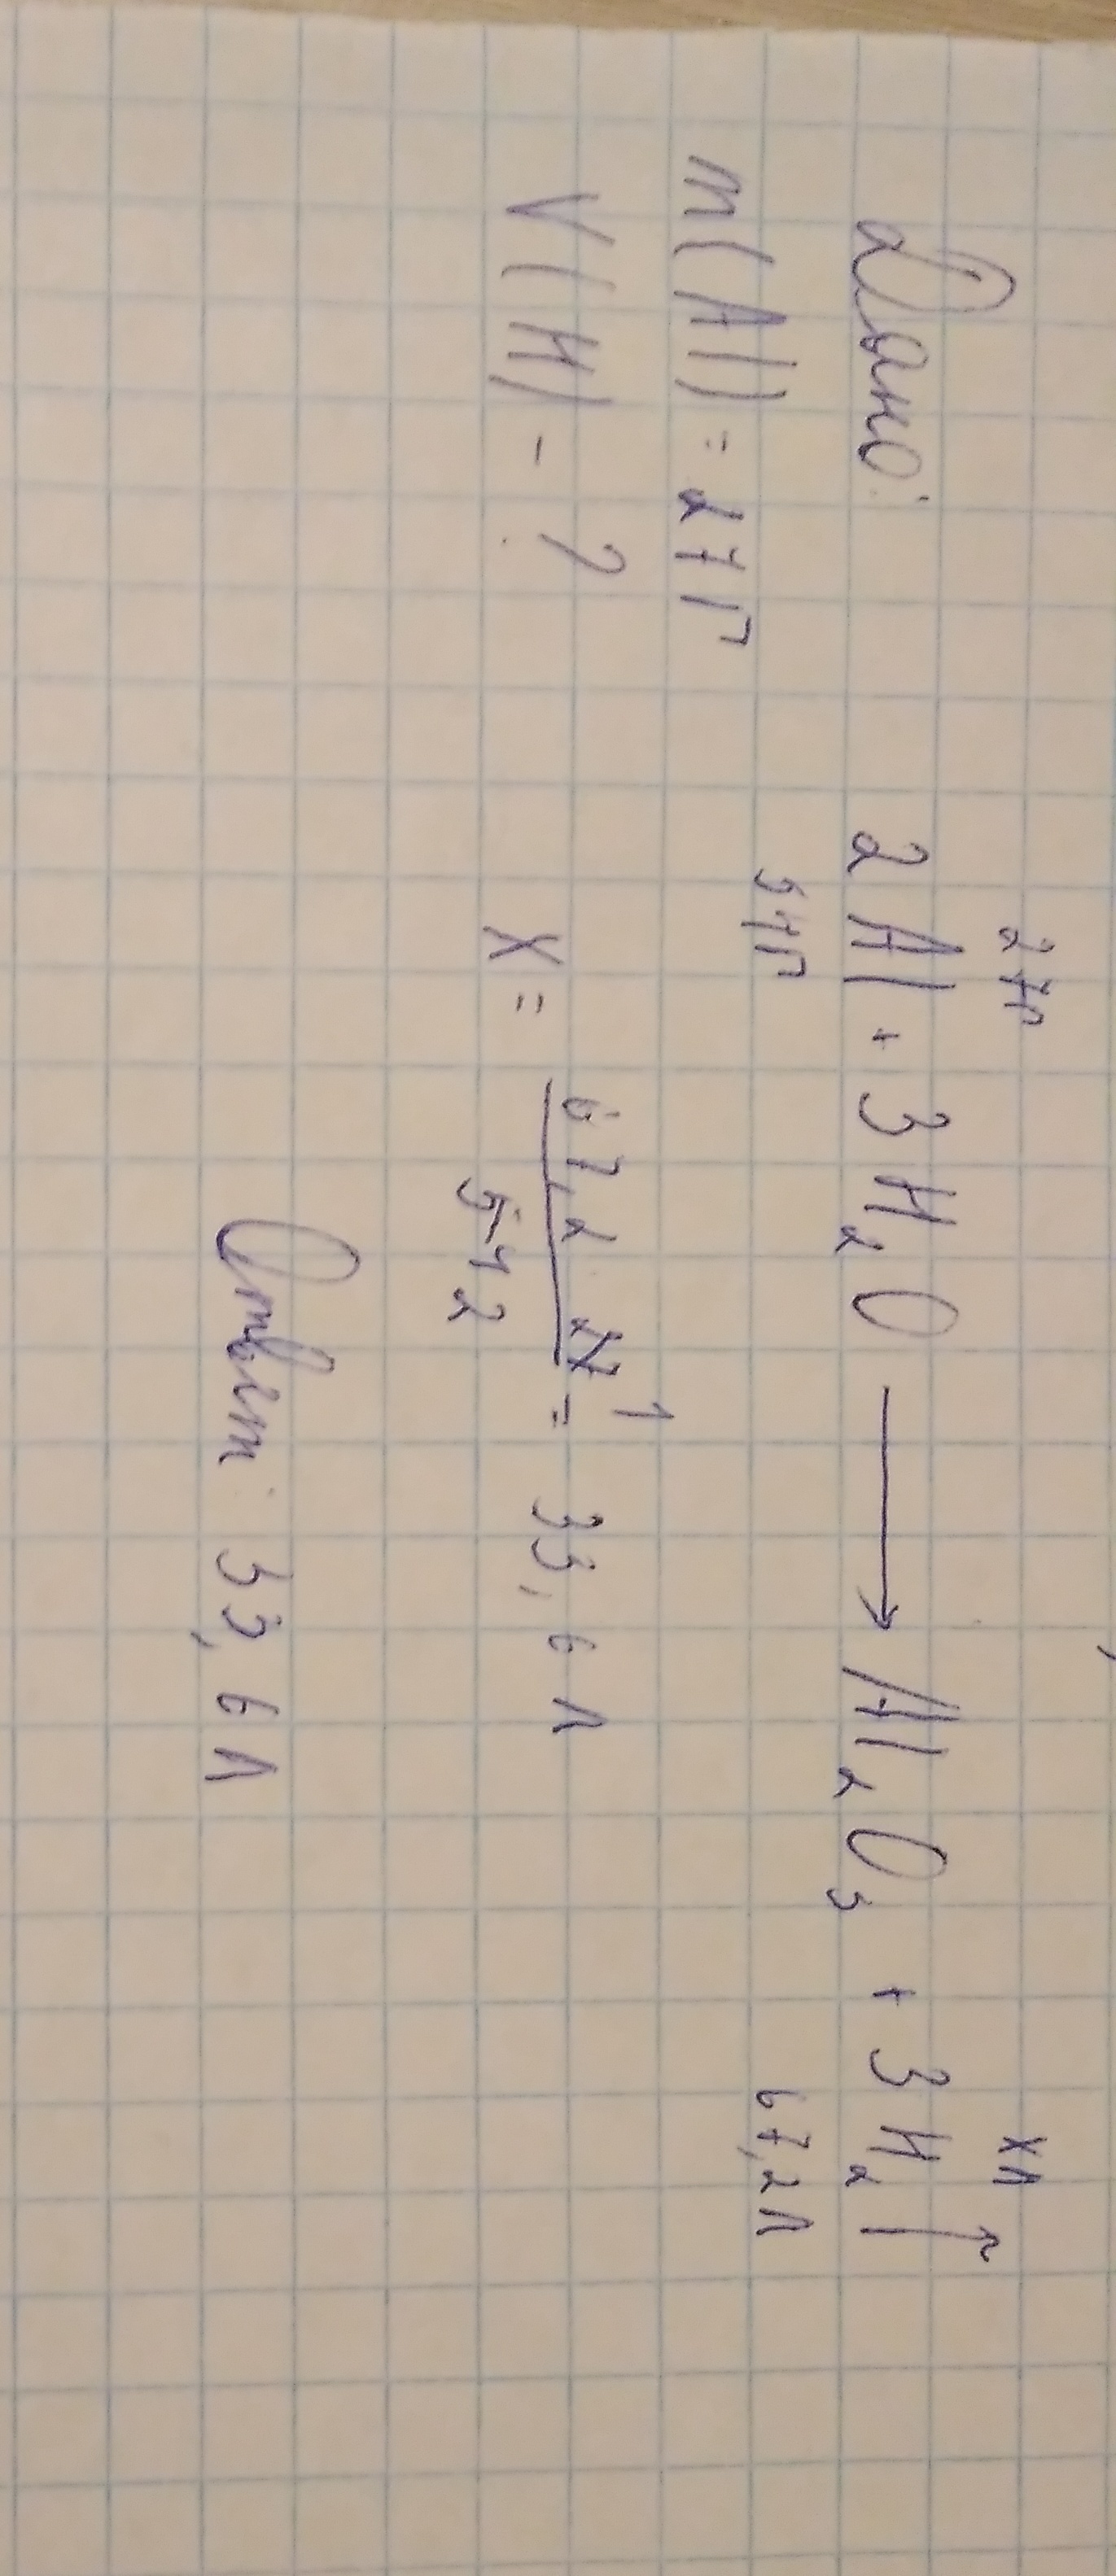 Дано:
m(Al) = 27г
V(H) - ?
27г хл
2Al + 3H₂O → Al₂O₃ + 3H₂↑
54г 67,2л
X = 67,2 27 1 / 54 2 = 33,6 л
Ответ: 33,6 л